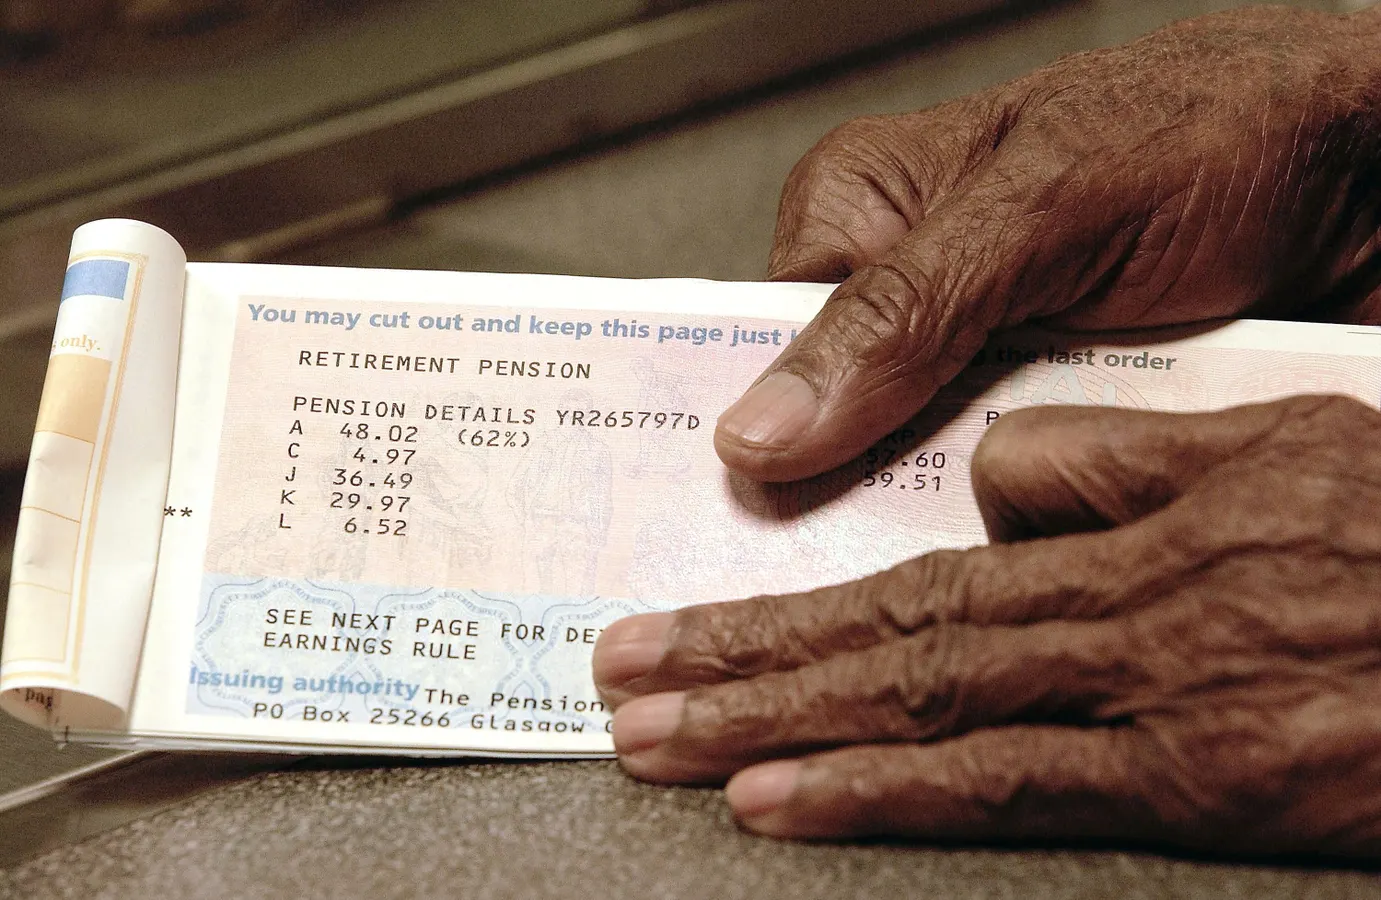 only.
You may cut out and keep this page just
the last order
RETIREMENT PENSION
PENSION DETAILS YR265797D
A 48.02 (62%)
C 4.97
J 36.49
K 29.97
L 6.52
.60
59.51
**
SEE NEXT PAGE FOR
EARNINGS RULE
Issuing authority The Pension
PO Box 25266 Glasgow
pag